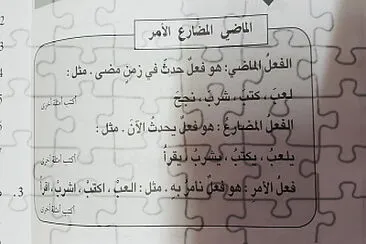 الماضي المضارع الأمر
الفعلُ الماضي: هو فعلٌ حدثَ في زمنٍ مضى. مثل:
لعبَ، كتبَ، شربَ، نجحَ
أكتب أمثلة أخرى
الفعلُ المضارعُ: هو فعلٌ يحدثُ الآنَ. مثل:
يلعبُ، يكتبُ، يشربُ، يقرأُ
أكتب أمثلة أخرى
فعلُ الأمرِ: هو فعلٌ نأمرُ بهِ. مثل: العبْ، اكتبْ، اشربْ، اقرأْ
أكتب أمثلة أخرى
3.